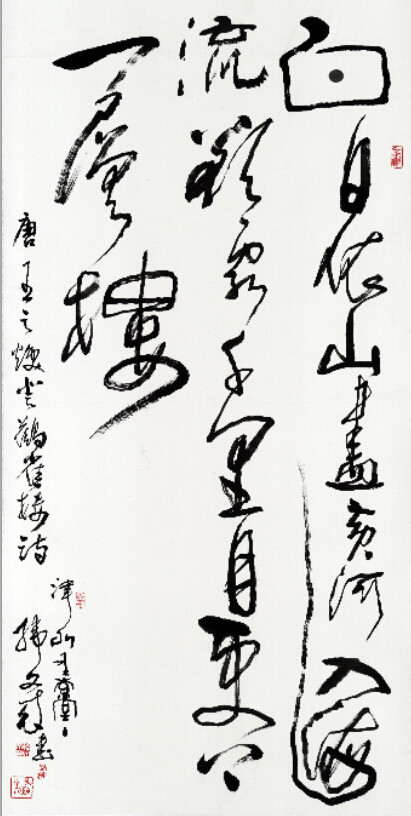 白日依山盡黃河入海
流欲窮千里目更上
一層樓
唐王之渙登鸛雀樓詩
津
文書